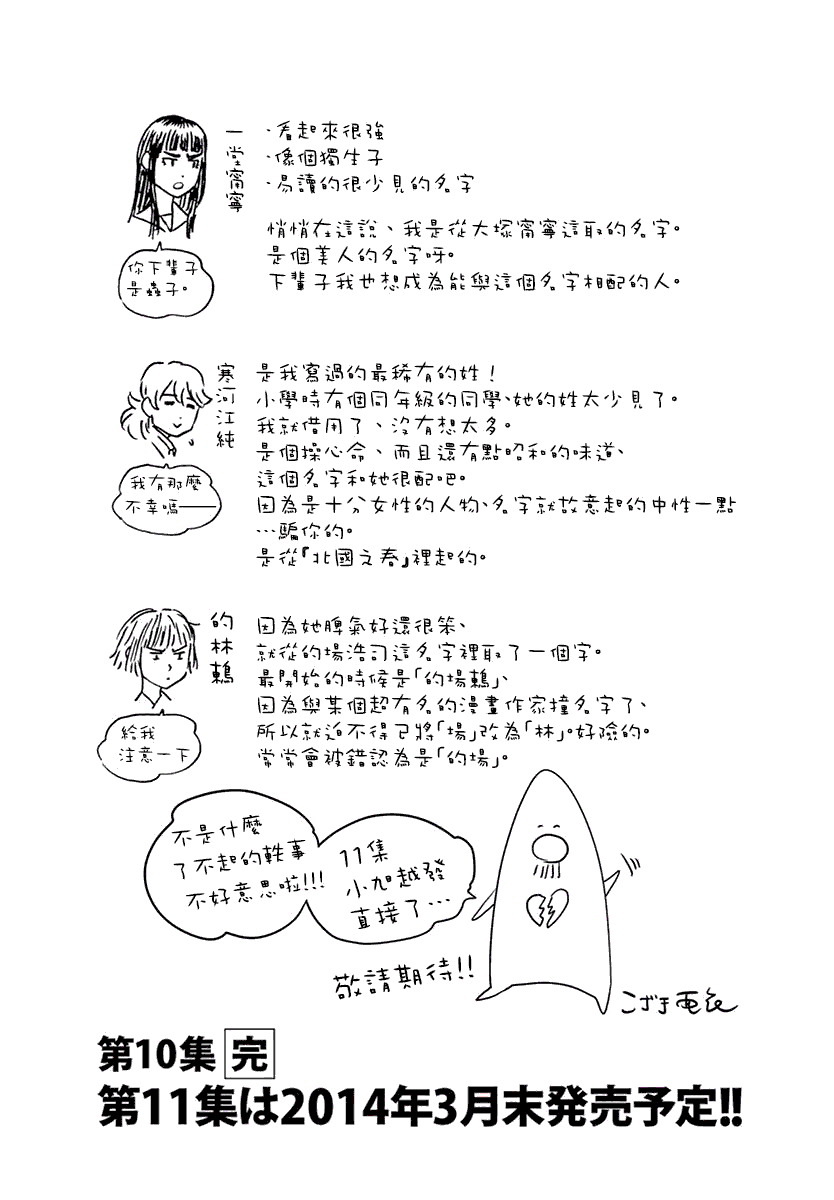 一堂甯寧
·看起來很強
·像個獨生子
·易讀的很少見的名字
悄悄在這說、我是從大塚甯寧這取的名字。
是個美人的名字呀。
下輩子我也想成為能與這個名字相配的人。
你下輩子
是蟲子。
寒河江純
是我寫過的最稀有的姓！
小學時有個同年級的同學、她的姓太少見了。
我就借用了、沒有想太多。
是個操心命、而且還有點昭和的味道、
這個名字和她很配吧。
因為是十分女性的人物、名字就故意起的中性一點
…騙你的。
是從『北國之春』裡起的。
我有那麼
不幸嗎——
的林鶫
因為她脾氣好還很笨、
就從的場浩司這名字裡取了一個字。
最開始的時候是「的場鶫」、
因為與某個超有名的漫畫作家撞名字了、
所以就迫不得已將「場」改為「林」。好險的。
常常會被錯認為是「的場」。
給我
注意一下
不是什麼
了不起的軼事
不好意思啦!!!
11集
小旭越發
直接了…
敬請期待!!
こざき亜衣
第10集 完
第11集は2014年3月末発売予定!!